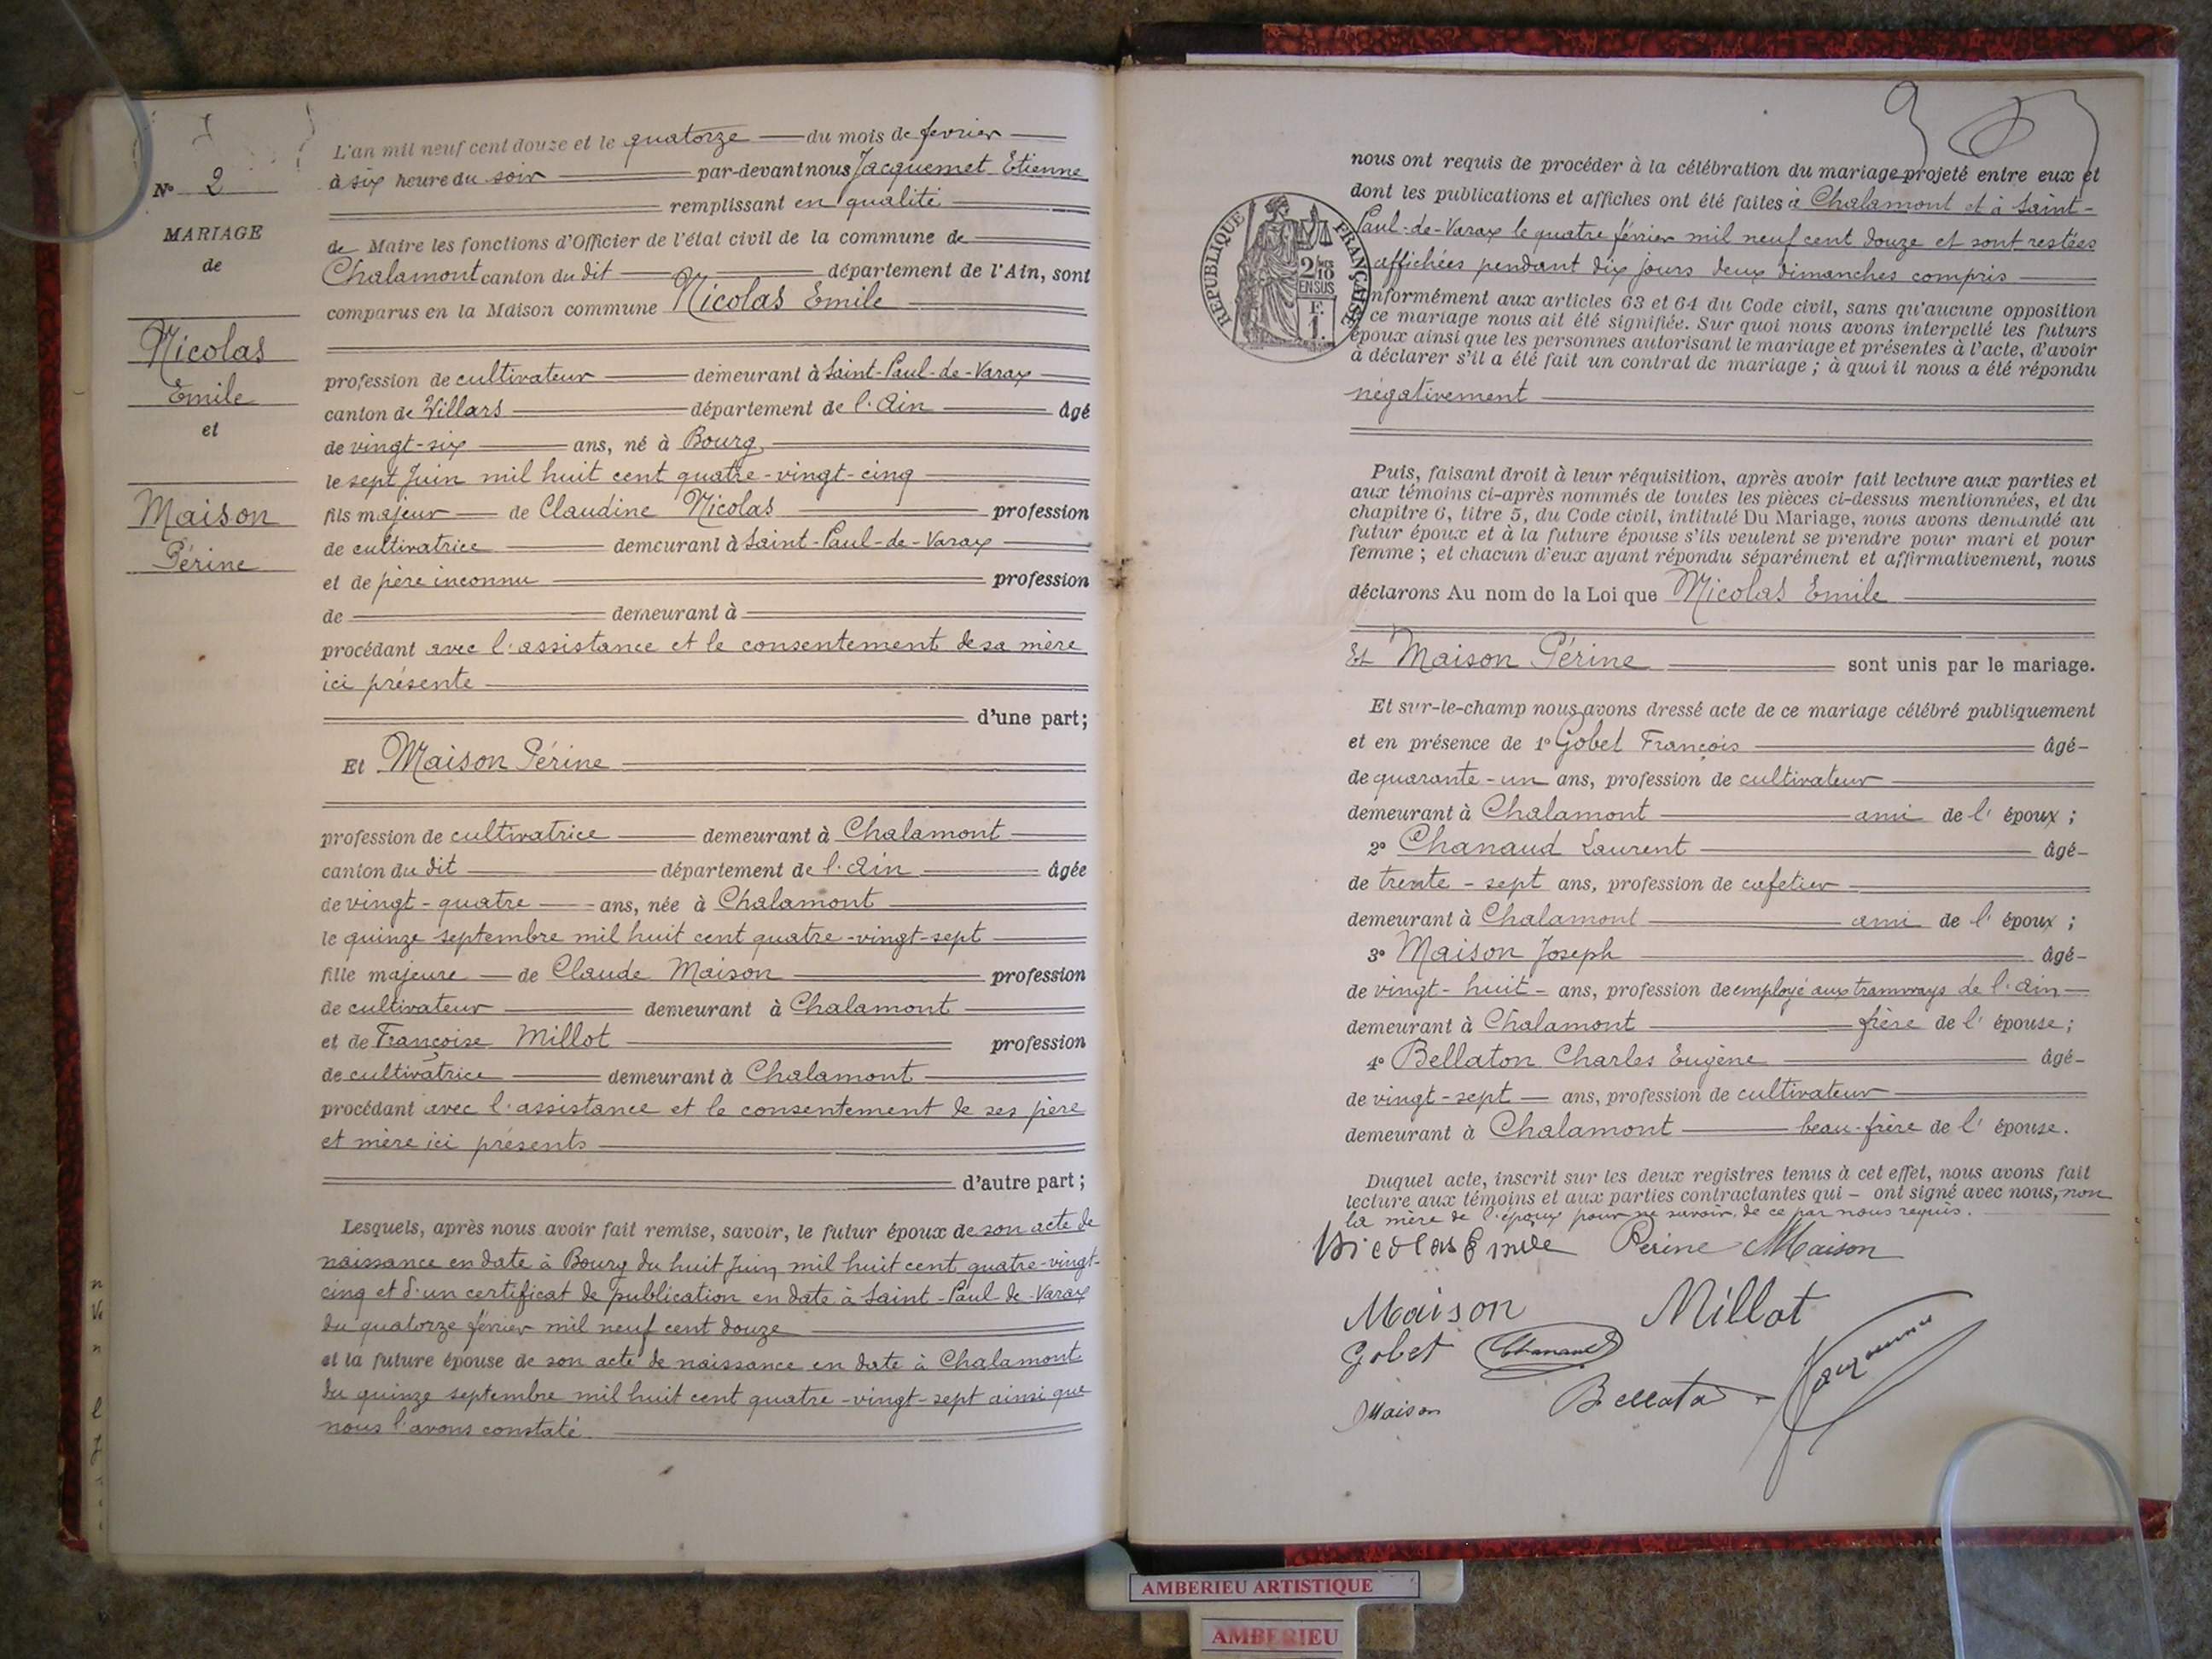 N° 2
MARIAGE
de
Nicolas
Emile
et
Maison
Périne
L'an mil neuf cent douze et le quatorze du mois de fevrier
à six heure du soir par-devant nous Jacquemet Etienne
remplissant en qualité
de Maire les fonctions d'Officier de l'état civil de la commune de
Chalamont canton du dit département de l'Ain, sont
comparus en la Maison commune Nicolas Emile
profession de cultivateur demeurant à Saint-Paul-de-Varax
canton de Villars département de l'Ain âgé
de vingt-six ans, né à Bourg
le sept Juin mil huit cent quatre-vingt-cinq
fils majeur de Claudine Nicolas profession
de cultivatrice demeurant à Saint-Paul-de-Varax
et de père inconnu profession
de demeurant à
procédant avec l'assistance et le consentement de sa mère
ici présente
d'une part;
Et Maison Périne
profession de cultivatrice demeurant à Chalamont
canton du dit département de l'Ain âgée
de vingt-quatre ans, née à Chalamont
le quinze septembre mil huit cent quatre-vingt-sept
fille majeure de Claude Maison profession
de cultivateur demeurant à Chalamont
et de Françoise Millot profession
de cultivatrice demeurant à Chalamont
procédant avec l'assistance et le consentement de ses père
et mère ici présents
d'autre part;
Lesquels, après nous avoir fait remise, savoir, le futur époux de son acte de
naissance en date à Bourg du huit Juin mil huit cent quatre-vingt-
cinq et d'un certificat de publication en date à Saint-Paul-de-Varax
du quatorze février mil neuf cent douze
et la future épouse de son acte de naissance en date à Chalamont
du quinze septembre mil huit cent quatre-vingt-sept ainsi que
nous l'avons constaté.
nous ont requis de procéder à la célébration du mariage projeté entre eux et
dont les publications et affiches ont été faites à Chalamont et à Saint-
Paul-de-Varax le quatre février mil neuf cent douze et sont restées
affichées pendant dix jours deux dimanches compris
REPUBLIQUE FRANÇAISE
2/10
EN SUS
F.
1.
nformément aux articles 63 et 64 du Code civil, sans qu'aucune opposition
ce mariage nous ait été signifiée. Sur quoi nous avons interpellé les futurs
époux ainsi que les personnes autorisant le mariage et présentes à l'acte, d'avoir
à déclarer s'il a été fait un contrat de mariage; à quoi il nous a été répondu
négativement
Puis, faisant droit à leur réquisition, après avoir fait lecture aux parties et
aux témoins ci-après nommés de toutes les pièces ci-dessus mentionnées, et du
chapitre 6, titre 5, du Code civil, intitulé Du Mariage, nous avons demandé au
futur époux et à la future épouse s'ils veulent se prendre pour mari et pour
femme; et chacun d'eux ayant répondu séparément et affirmativement, nous
déclarons Au nom de la Loi que Nicolas Emile
Et Maison Périne sont unis par le mariage.
Et sur-le-champ nous avons dressé acte de ce mariage célébré publiquement
et en présence de 1° Gobet François âgé
de quarante-un ans, profession de cultivateur
demeurant à Chalamont ami de l' époux;
2° Chanaud Laurent âgé
de trente-sept ans, profession de cafetier
demeurant à Chalamont ami de l' époux;
3° Maison Joseph âgé
de vingt-huit ans, profession de employé aux tramways de l'Ain
demeurant à Chalamont frère de l' épouse;
4° Bellaton Charles Eugène âgé
de vingt-sept ans, profession de cultivateur
demeurant à Chalamont beau-frère de l' épouse.
Duquel acte, inscrit sur les deux registres tenus à cet effet, nous avons fait
lecture aux témoins et aux parties contractantes qui ont signé avec nous, non
la mère de l'époux pour ne savoir, de ce par nous requis.
Nicolas Emile Perine Maison
Maison Millot
Gobet Chanaud
Maison Bellaton Jacquemet
AMBERIEU ARTISTIQUE
AMBERIEU